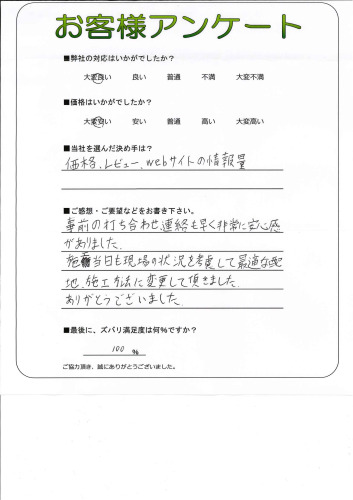 お客様アンケート
■弊社の対応はいかがでしたか?
大変良い 良い 普通 不満 大変不満
■価格はいかがでしたか?
大変安い 安い 普通 高い 大変高い
■当社を選んだ決め手は?
価格、レビュー、webサイトの情報量
■ご感想・ご要望などをお書き下さい。
事前の打ち合わせ連絡も早く非常に安心感
がありました。
施工当日も現場の状況を考慮して最適な配
地、施工方法に変更して頂きました。
ありがとうございました。
■最後に、ズバリ満足度は何%ですか?
100 %
ご協力頂き、誠にありがとうございました。